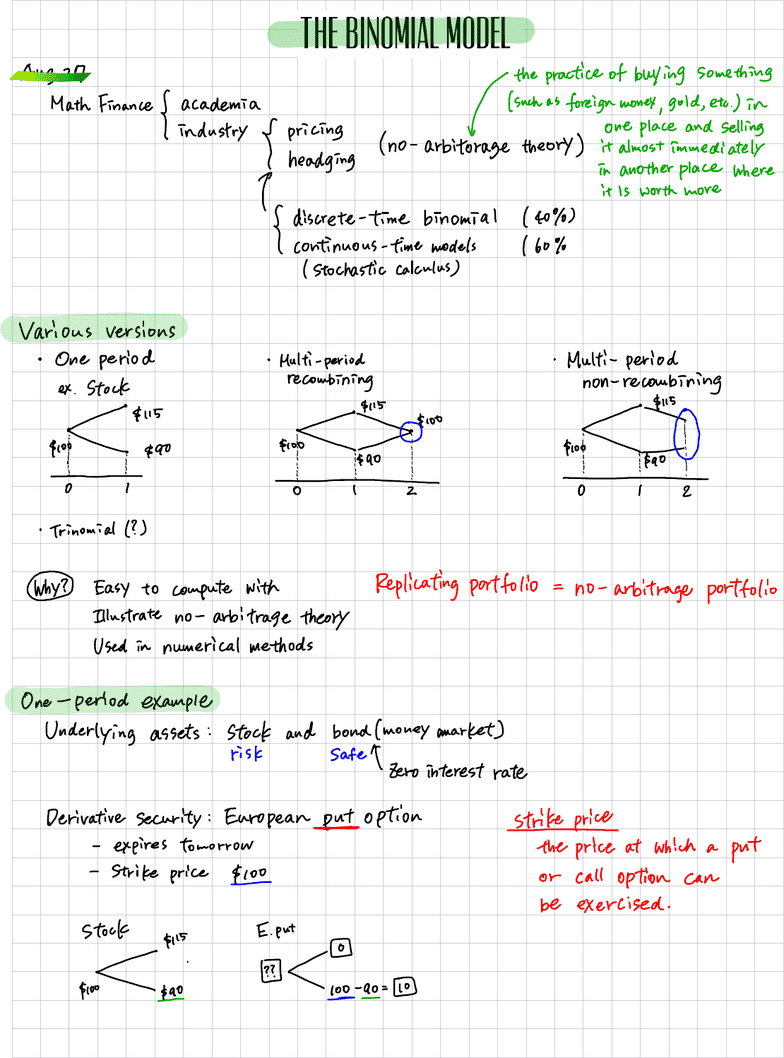 THE BINOMIAL MODEL
Aug 20
Math Finance { academia
industry { pricing
headging
(no-arbitorage theory)
the practice of buying something
(such as foreign money, gold, etc.) in
one place and selling
it almost immediately
in another place where
it is worth more
{ discrete-time binomial (40%)
continuous-time models (60%
(Stochastic calculus)
Various versions
· One period
ex. Stock
$115
$100
$90
0 1
· Multi-period
recombining
$115
$100
$100
$90
0 1 2
· Multi-period
non-recoubining
$115
$100
$90
0 1 2
· Trinomial (?)
Why? Easy to compute with
Illustrate no-arbitrage theory
Used in numerical methods
Replicating portfolio = no-arbitrage portfolio
One-period example
Underlying assets: Stock and bond (money market)
risk Safe
Zero interest rate
Derivative security: European put option
- expires tomorrow
- Strike price $100
Strike price
the price at which a put
or call option can
be exercised.
Stock
$115
$100
$90
E.put
0
??
100-90=10